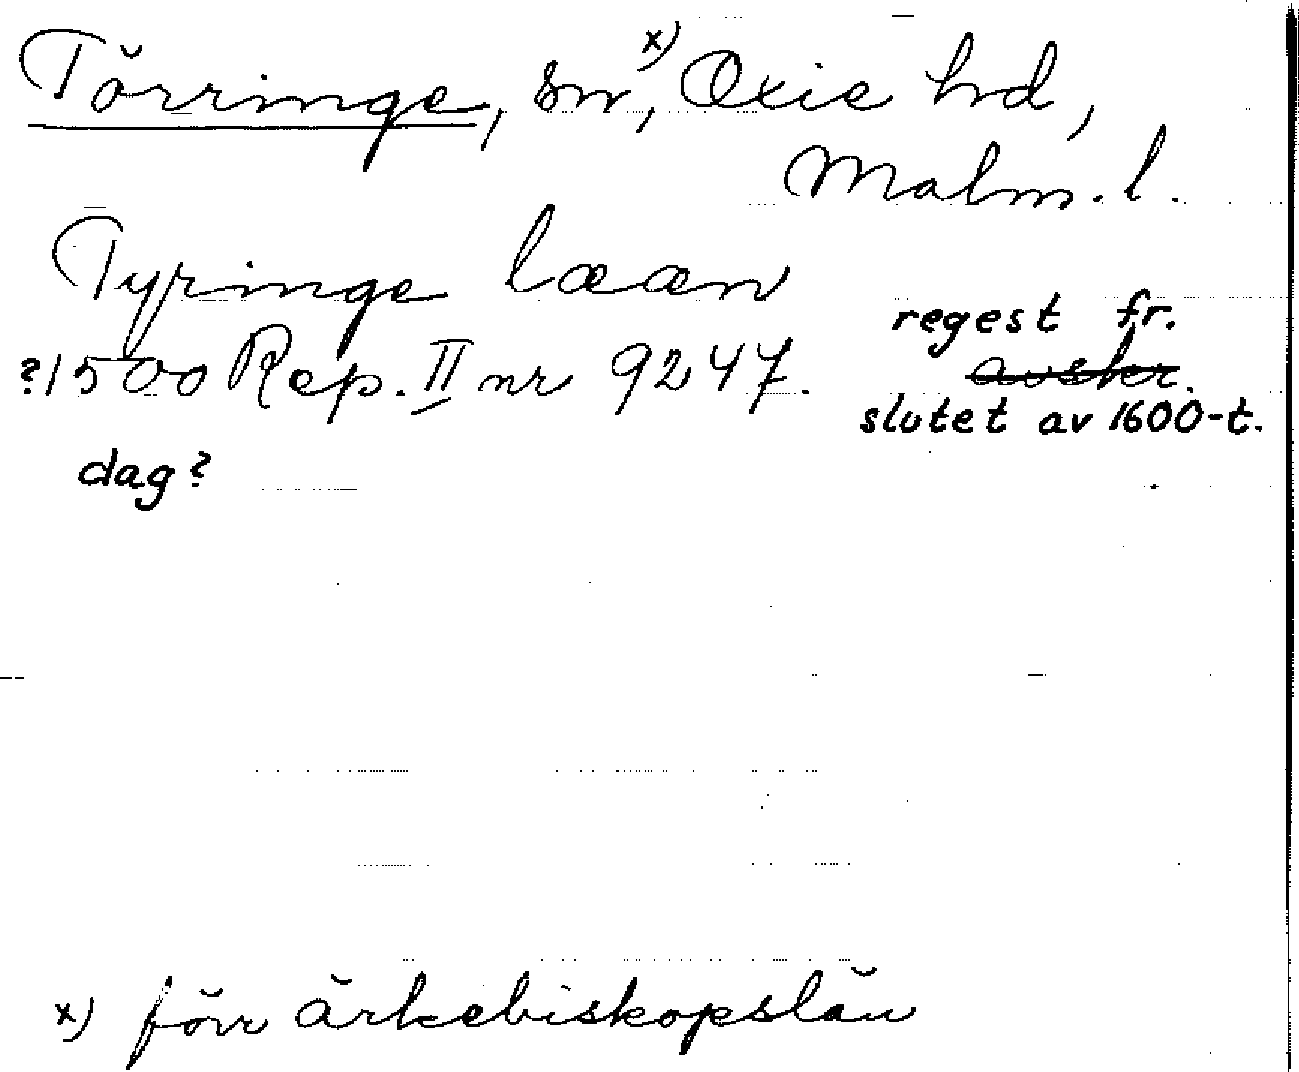 Törringe, sn,ˣ⁾ Oxie hd,
Malm. l.
Tyringe lææn
regest fr.
?1500 Rep. II nr 9247. avskr.
slutet av 1600-t.
dag?
x) förr ärkebiskopslän